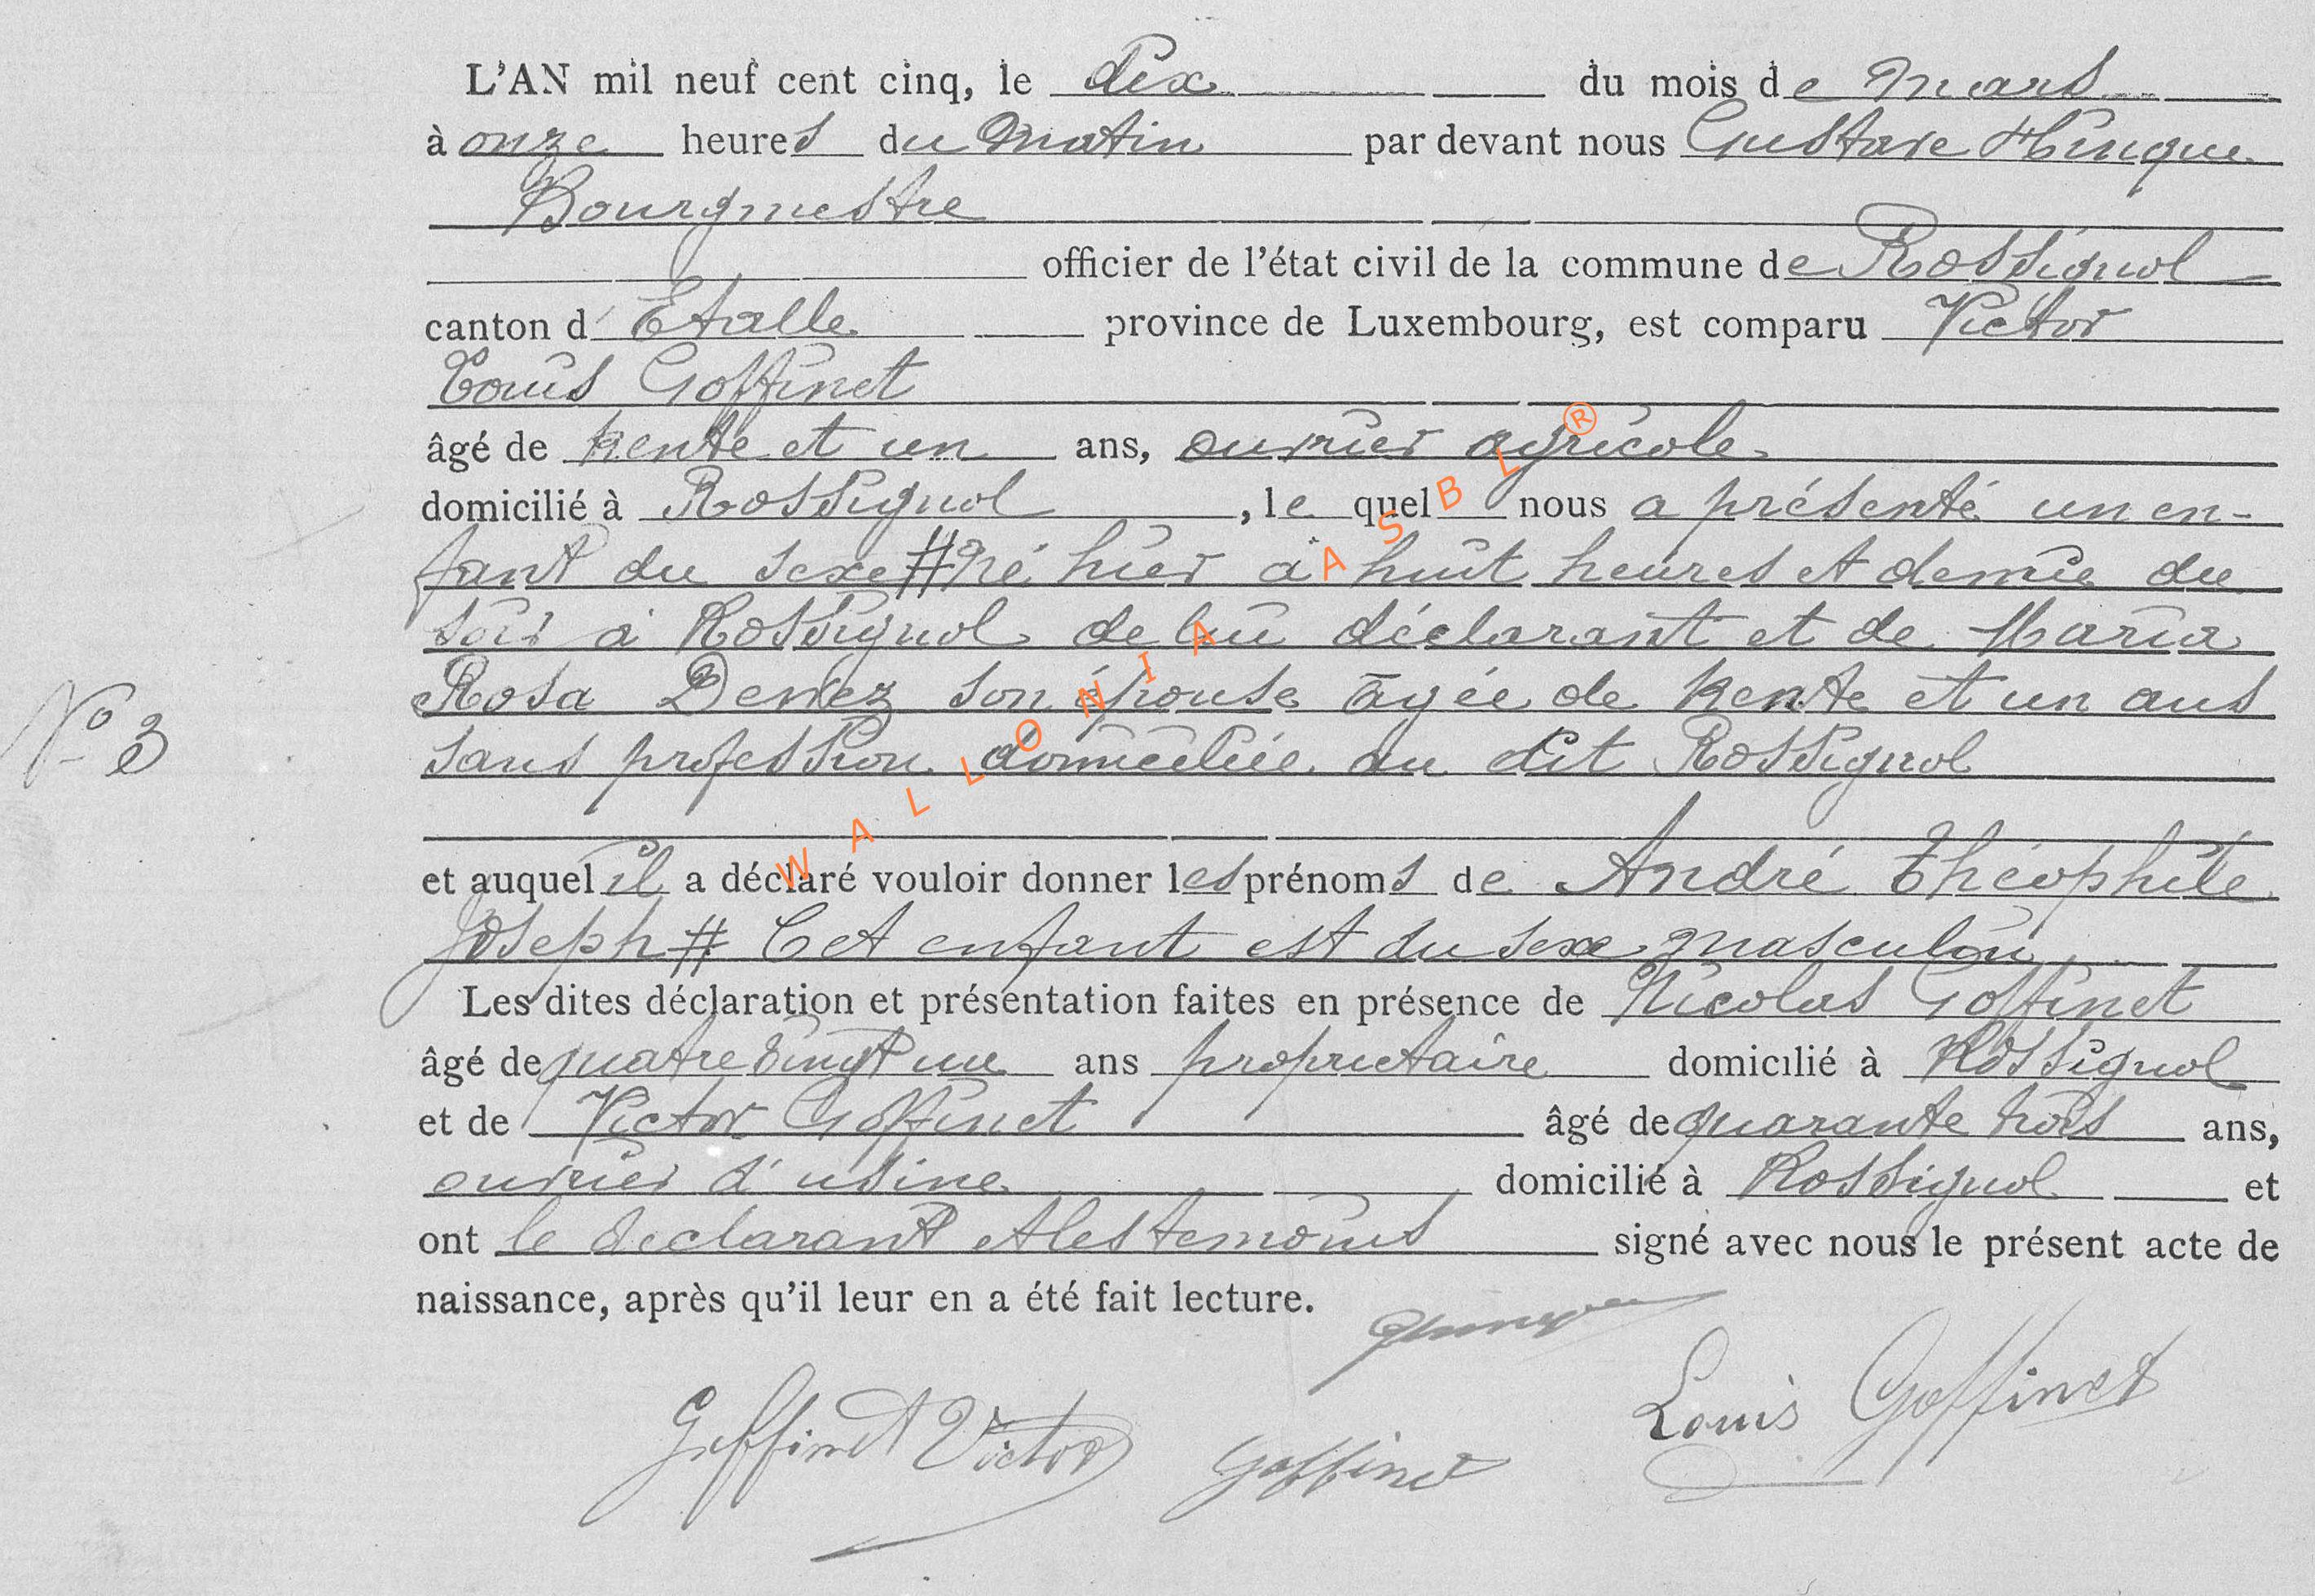 L'AN mil neuf cent cinq, le dix du mois de Mars
à onze heures du Matin par devant nous Gustave Hinque
Bourgmestre
officier de l'état civil de la commune de Rossignol
canton d' Etalle province de Luxembourg, est comparu Victor
Louis Goffinet
âgé de trente et un ans, ouvrier agricole
domicilié à Rossignol, le quel nous a présenté un en-
fant du sexe # né hier à huit heures et demie du
soir à Rossignol de lui déclarant et de Maria
Rosa Denez son épouse âgée de trente et un ans
N° 3
sans profession domiciliée au dit Rossignol
et auquel il a déclaré vouloir donner les prénoms de André Théophile
Joseph # Cet enfant est du sexe masculin
Les dites déclaration et présentation faites en présence de Nicolas Goffinet
âgé de quatre vingt un ans propriétaire domicilié à Rossignol
et de Victor Goffinet âgé de quarante trois ans,
ouvrier d'usine domicilié à Rossignol et
ont le declarant et les temoins signé avec nous le présent acte de
naissance, après qu'il leur en a été fait lecture.
Goffinet Victor Goffinet Louis Goffinet
WALLONIA ASBL ®